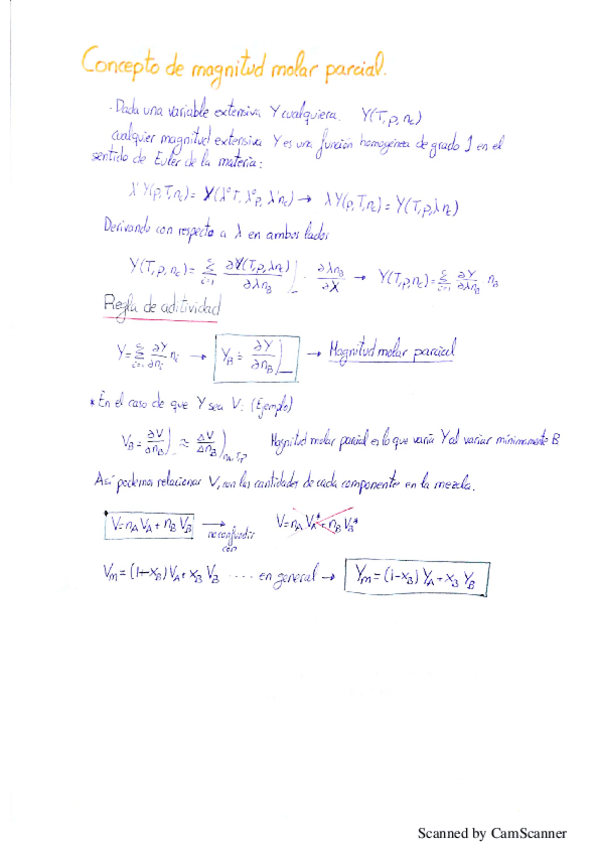 Concepto de magnitud molar parcial.
· Dada una variable extensiva Y cualquiera. Y(T, p, nc)
cualquier magnitud extensiva Y es una función homogénea de grado 1 en el
sentido de Euler de la materia:
λ¹Y(p,T,nc) = Y(λ⁰T, λ⁰p, λ¹nc) → λY(p,T,nc) = Y(T,p,λnc)
Derivando con respecto a λ en ambos lados
Y(T,p,nc) = Σ ∂Y(T,p,λnc)/∂λnB · ∂λnB/∂X → Y(T,p,nc) = Σ ∂Y/∂λnB nB
Regla de aditividad
Y = Σ ∂Y/∂ni ni → YB = ∂Y/∂nB → Magnitud molar parcial
* En el caso de que Y sea V: (Ejemplo)
VB = ∂V/∂nB ≈ ΔV/ΔnB)nA,T,P Magnitud molar parcial es lo que varía Y al variar mínimamente B
Así podemos relacionar V, con las cantidades de cada componente en la mezcla.
V = nA VA + nB VB → no confundir con V = nA VA* + nB VB*
Vm = (1-xB) VA + xB VB ····· en general → Ym = (1-xB) YA + xB YB
Scanned by CamScanner